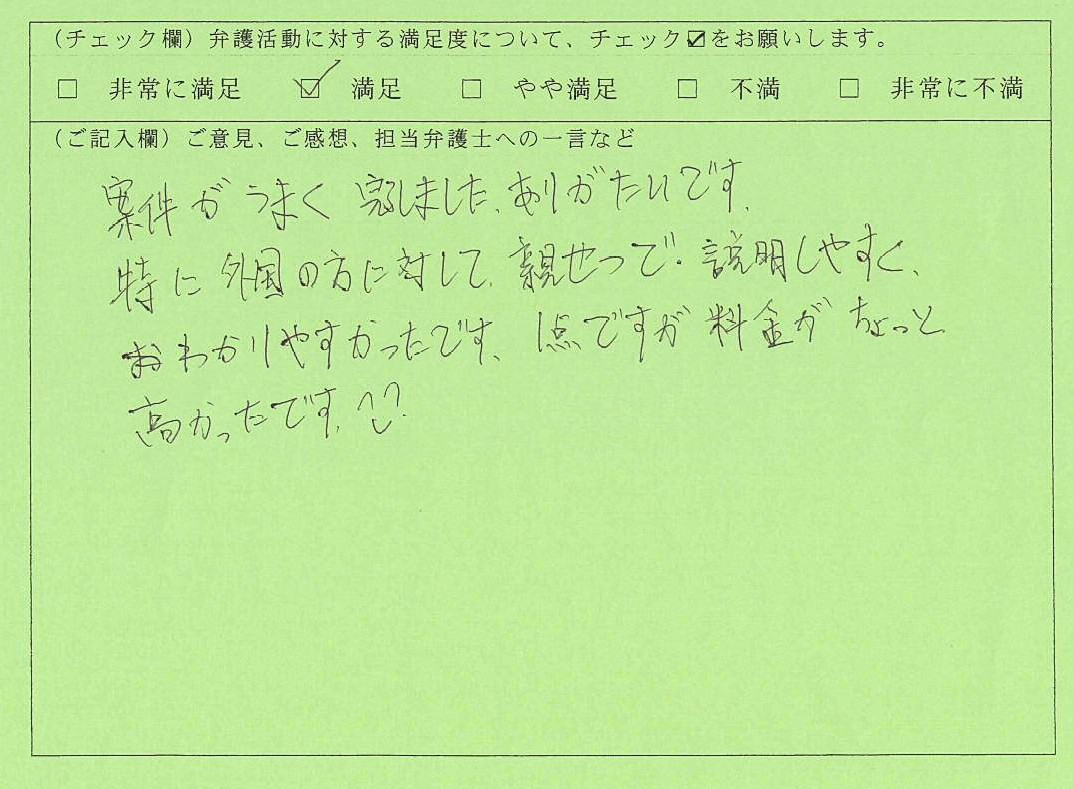 (チェック欄)弁護活動に対する満足度について、チェック☑をお願いします。
□ 非常に満足 ☑ 満足 □ やや満足 □ 不満 □ 非常に不満
(ご記入欄)ご意見、ご感想、担当弁護士への一言など
案件がうまく完しました、ありがたいです、
特に外国の方に対して、親せつで、説明しやすく、
おわかりやすかったです、1点ですが料金がちょっと
高かったです、